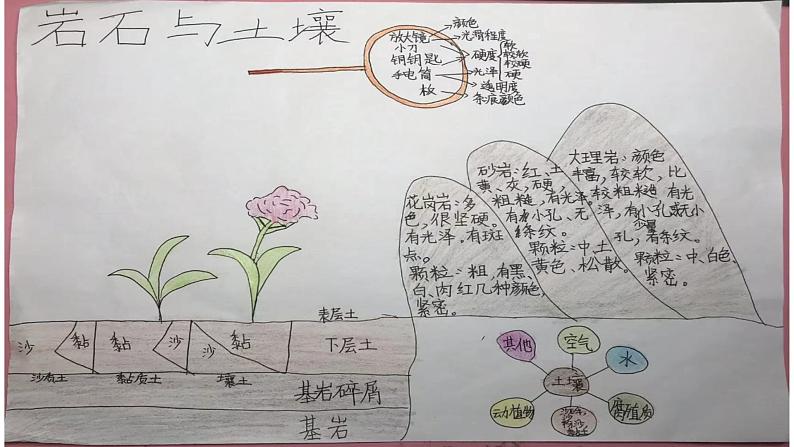 岩石与土壤
放大镜
小刀
钥钥匙
手电筒
枚
颜色
光滑程度
硬度
软
较软
较硬
硬
光泽
透明度
条痕颜色
花岗岩：多
色，很坚硬。
有光泽，有斑
点。
颗粒：粗，有黑、
白、肉红几种颜色，
紧密。
砂岩：红、土
黄、灰，硬，
粗糙，有光泽。
有小孔、无
条纹。
颗粒：中、土
黄色、松散。
大理岩：颜色
丰富，较软，比
较粗糙，有光
泽，有小孔或无小
孔，有条纹。
颗粒：中、白色、
紧密。
表层土
沙
黏
黏
沙
沙
黏
下层土
沙质土
黏质土
壤土
基岩碎屑
基岩
其他
空气
水
土壤
动植物
腐殖质